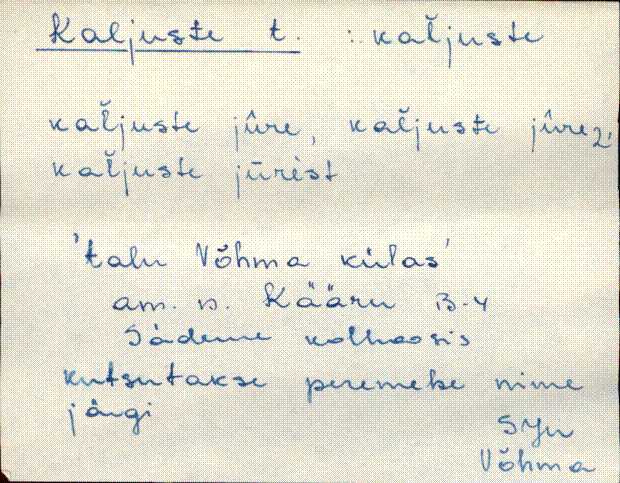 Kaljuste t. : kaľjuste
kaľjuste jũre, kaľjuste jũre2,
kaľjuste jūrèst
'talu Võhma külas'
am. n. Kääru B-4
Sädeme kolhoosis
kutsutakse peremehe nime
järgi
SYu
Võhma